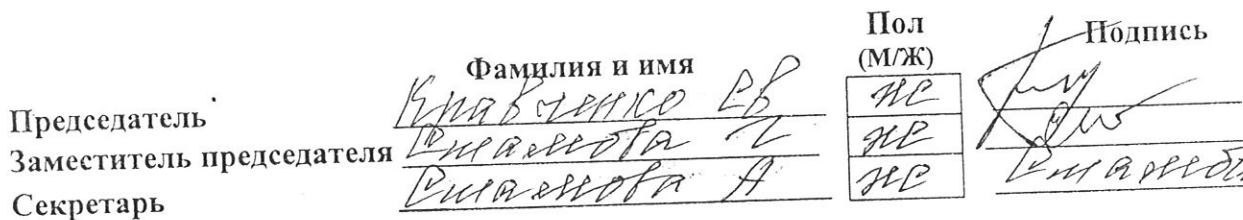 Фамилия и имя Пол (М/Ж) Подпись
Председатель Кравченко Ев ж
Заместитель председателя Стамова ж
Секретарь Стамова А ж